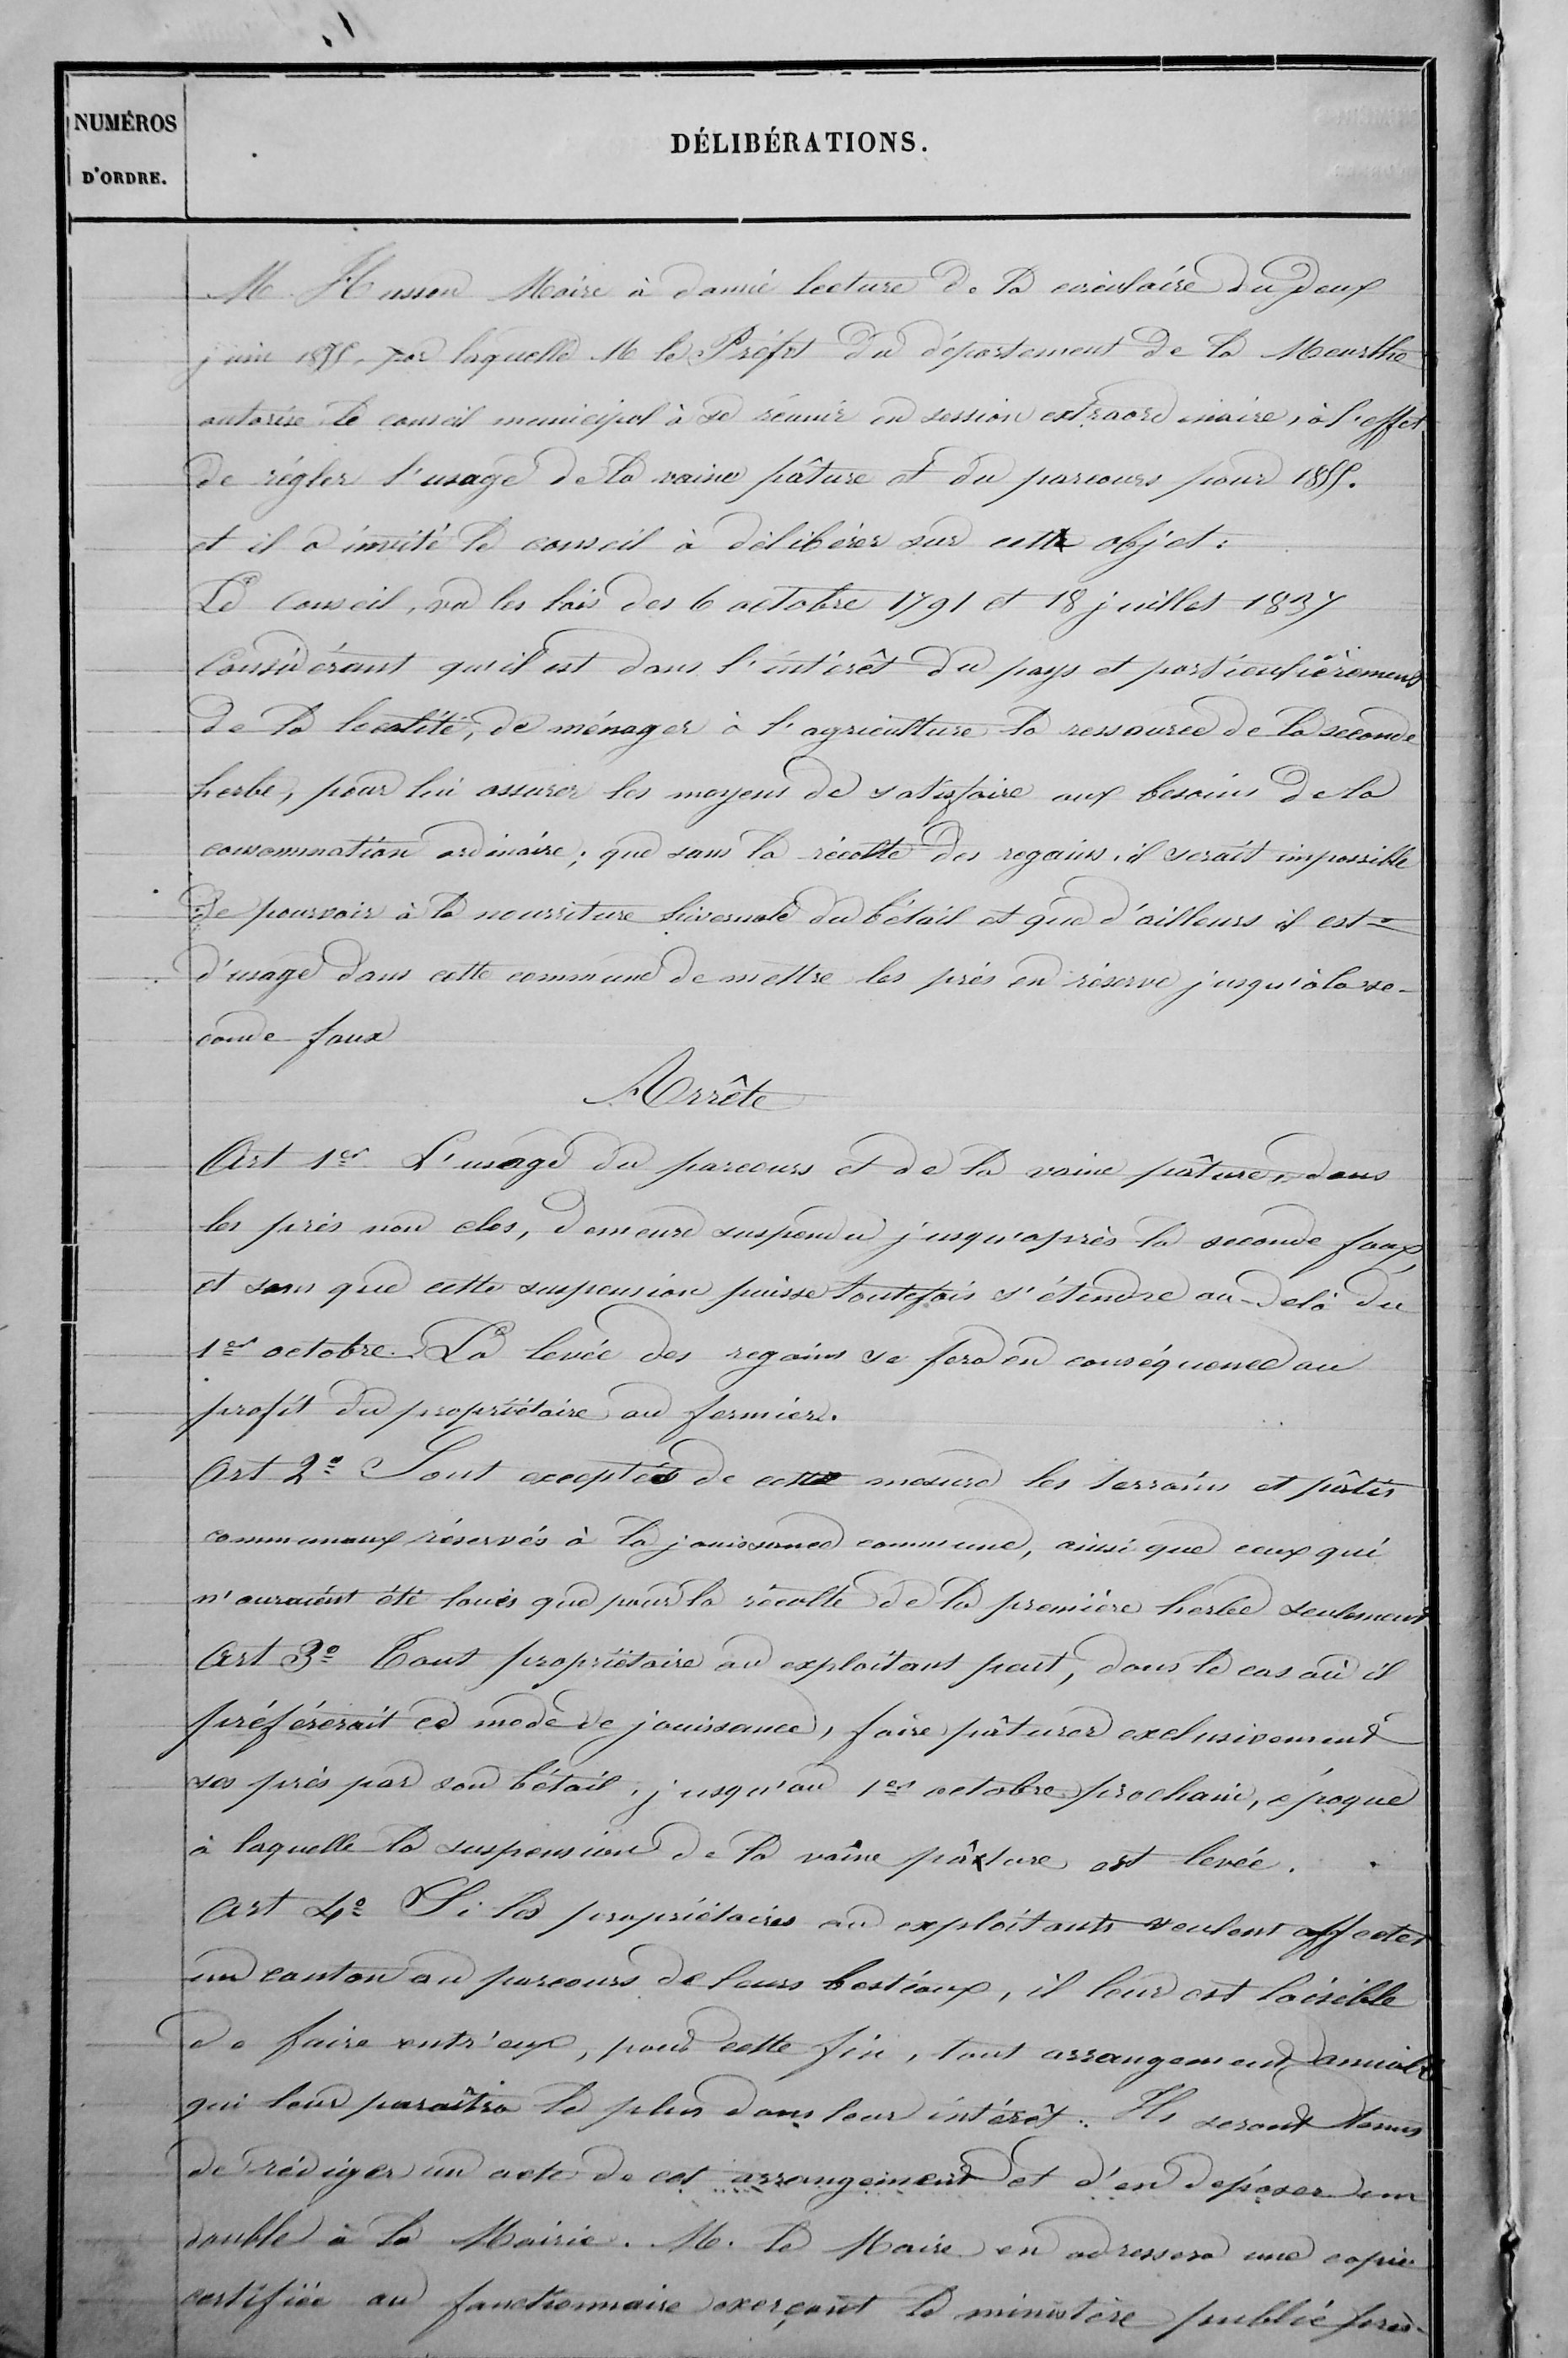 NUMÉROS
D'ORDRE.
DÉLIBÉRATIONS.
M Husson Maire à donné lecture de la circulaire du deux
juin 1855, par laquelle M le Préfet du département de la Meurthe
autorise le conseil municipal à se réunir en session extraordinaire, à l'effet
de régler l'usage de la vaine pâture et du parcours pour 1855.
et il a invité le conseil à délibérer sur cette objet :
Le Conseil, vu les lois des 6 octobre 1791 et 18 juillet 1837
Considérant qu'il est dans l'intérêt du pays et particulièrement
de la localité, de ménager à l'agriculture la ressource de la seconde
herbe, pour lui assurer les moyens de satisfaire aux besoins de la
consommation ordinaire ; que sans la récolte des regains, il serait impossible
de pourvoir à la nourriture hivernale du bétail et que d'ailleurs il est
d'usage dans cette commune de mettre les prés en réserve jusqu'à la se-
conde faux
Arrête
Art 1er L'usage du parcours et de la vaine pâture, dans
les près non clos, demeure suspendu jusqu'après la seconde faux,
et sans que cette suspension puisse toutefois s'étendre au-delà du
1er octobre. La levée des regains se fera en conséquence au
profit du propriétaire ou fermier.
Art 2º Sont exceptés de cette mesure les terrains et pâtis
communaux réservés à la jouissance commune, ainsi que ceux qui
n'auraient été loués que pour la récolte de la première herbe seulement
Art 3º Tout propriétaire ou exploitant peut, dans le cas où il
préférerait ce mode de jouissance, faire pâturer exclusivement
ses près par son bétail, jusqu'au 1er octobre prochain, époque
à laquelle la suspension de la vaine pâture est levée.
Art 4º Si les propriétaires ou exploitants veulent affecter
un canton au parcours de leurs bestiaux, il leur est loisible
de faire entr'eux, pour cette fin, tout arrangement amiable
qui leur paraîtra le plus dans leur intérêt. Ils seront tenus
de rédiger un acte de cet arrangement et d'en déposer un
double à la Mairie. M. le Maire en adressera une copie
certifiée au fonctionnaire exerçant le ministère public près-